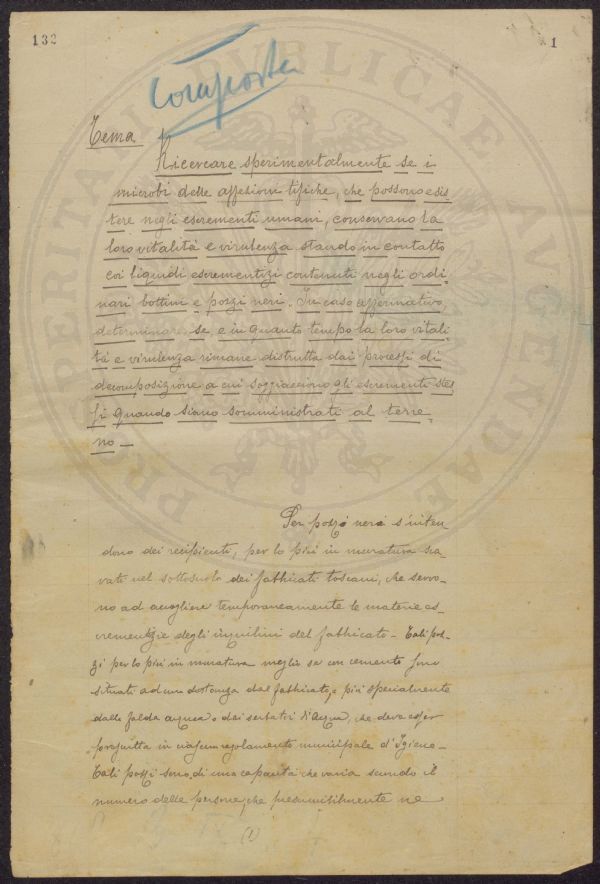 132
1
Composta
Tema
Ricercare sperimentalmente se i
microbi delle affezioni tifiche, che possono esis
tere negli escrementi umani, conservano la
loro vitalità e virulenza stando in contatto
coi liquidi escrementizi contenuti negli ordi-
nari bottini e pozzi neri. In caso affermativo,
determinare se, e in quanto tempo la loro vitali
tà e virulenza rimane distrutta dai processi di
decomposizione a cui soggiacciono gli escrementi stes
si quando siano somministrati al terre-
no—
Per pozzi neri s'inten-
dono dei recipienti, per lo più in muratura sca-
vati nel sottosuolo dei fabbricati toscani, che servo-
no ad accogliere temporaneamente le materie es-
crementizie degli inquilini del fabbricato— Tali poz-
zi per lo più in muratura meglio se con cemento sono
situati ad una distanza dal fabbricato, e più specialmente
dalla falda acquea o dai serbatoi d'Acqua, che deve esser
prescritta in ciascun regolamento municipale d'Igiene—
Tali pozzi sono di una capacità che varia secondo il
numero delle persone, che presumibilmente ne
(1)
PROSPERITATI PUBLICAE AUGENDAE